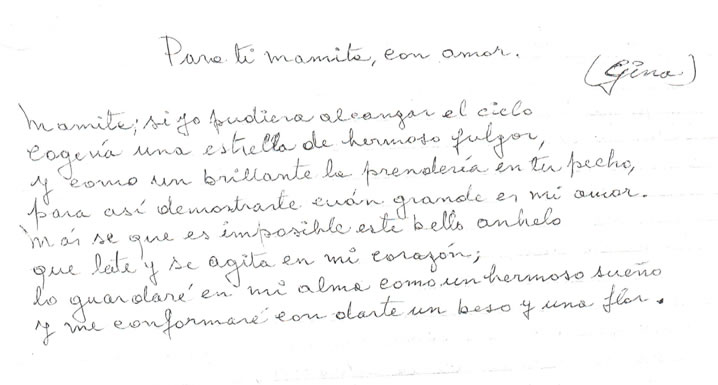 Para ti mamita, con amor.
(Gina)
Mamita; si yo pudiera alcanzar el cielo
cogería una estrella de hermoso fulgor,
y como un brillante la prendería en tu pecho,
para así demostrarte cuán grande es mi amor.
Más se que es imposible este bello anhelo
que late y se agita en mi corazón;
lo guardaré en mi alma como un hermoso sueño
y me conformaré con darte un beso y una flor.